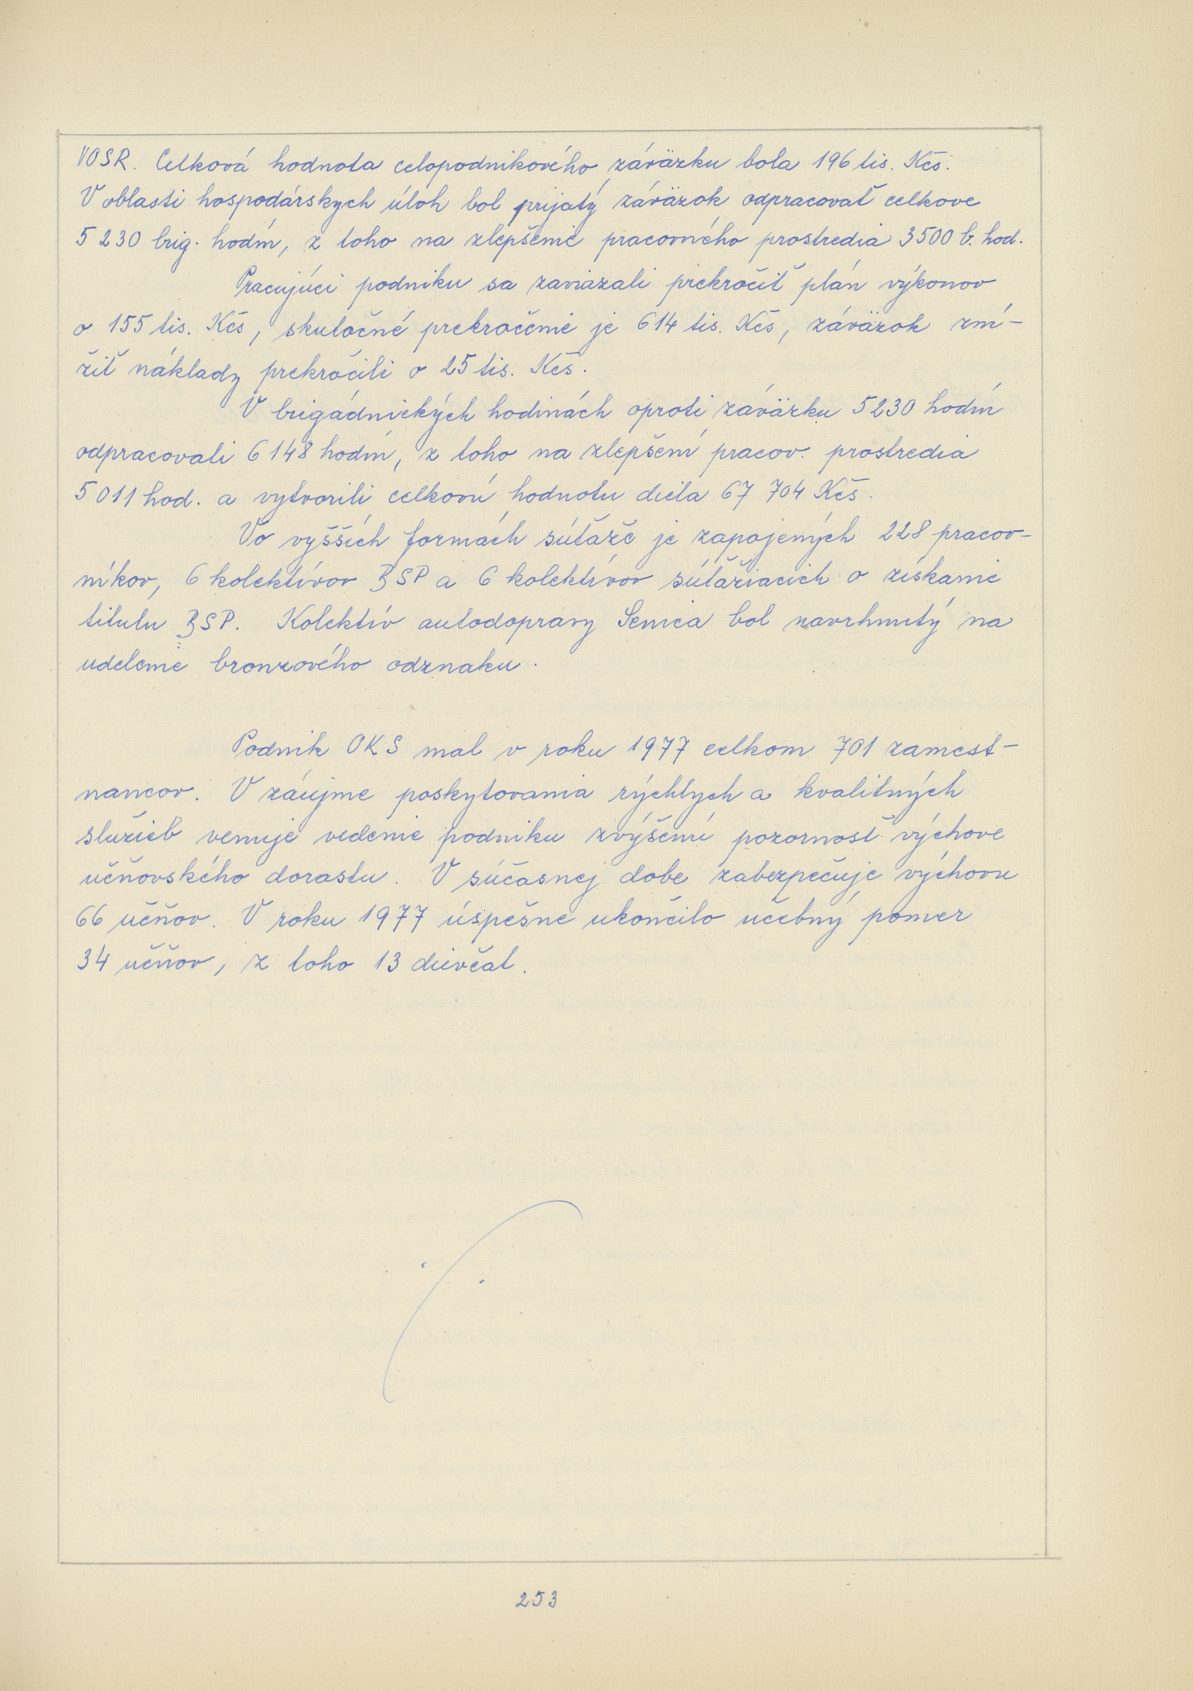 VOSR. Celková hodnota celopodnikového záväzku bola 196 tis. Kčs.
V oblasti hospodárskych úloh bol prijatý záväzok odpracovať celkove
5 230 brig. hodín, z toho na zlepšenie pracovného prostredia 3500 b. hod.
Pracujúci podniku sa zaviazali prekročiť plán výkonov
o 155 tis. Kčs, skutočné prekročenie je 614 tis. Kčs, záväzok zní-
žiť náklady prekročili o 25 tis. Kčs.
V brigádnických hodinách oproti záväzku 5230 hodín
odpracovali 6 148 hodín, z toho na zlepšení pracov. prostredia
5 011 hod. a vytvorili celkovú hodnotu diela 67 704 Kčs.
Vo vyšších formách súťaže je zapojených 228 pracov-
níkov, 6 kolektívov BSP a 6 kolektívov súťažiacich o získanie
titulu BSP. Kolektív autodopravy Senica bol navrhnutý na
udelenie bronzového odznaku.
Podnik OKS mal v roku 1977 celkom 701 zamest-
nancov. V záujme poskytovania rýchlych a kvalitných
služieb venuje vedenie podniku zvýšenú pozornosť výchove
učňovského dorastu. V súčasnej dobe zabezpečuje výchovu
66 učňov. V roku 1977 úspešne ukončilo učebný pomer
34 učňov, z toho 13 dievčat.
253